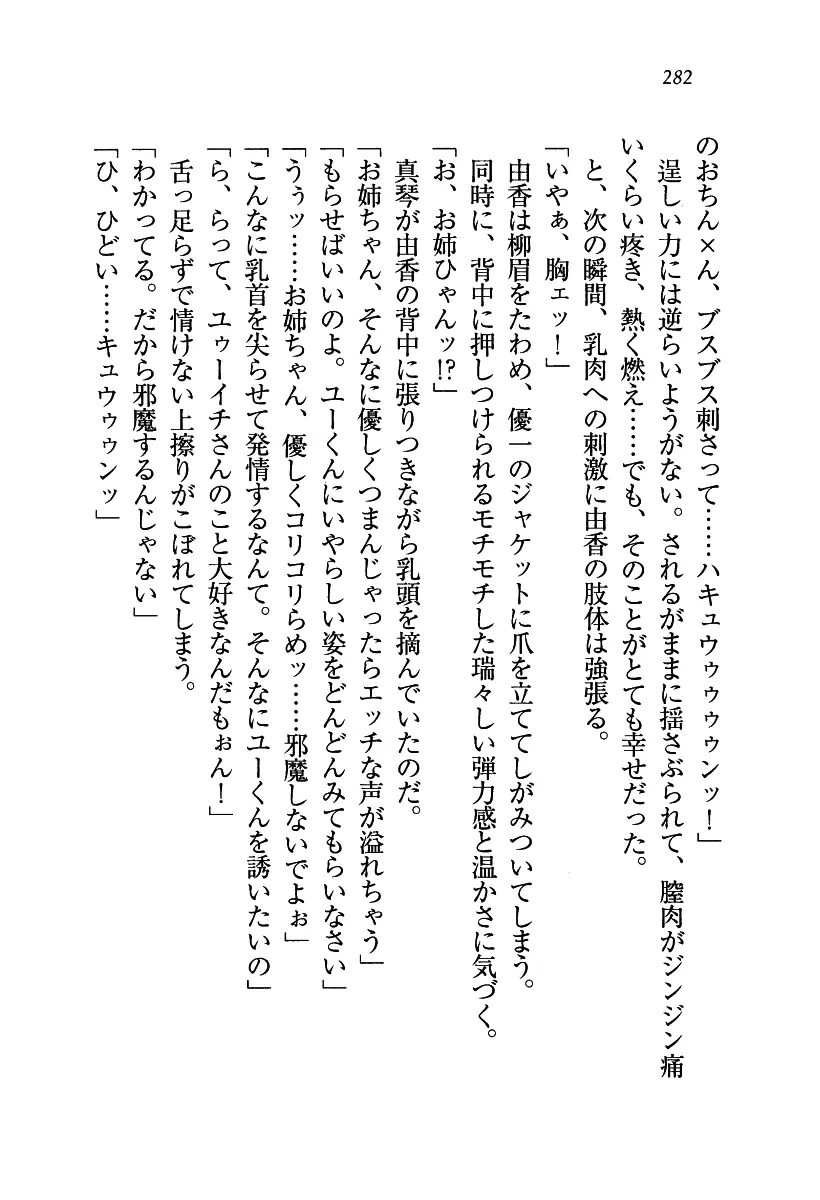 282
のおちん×ん、ブスブス刺さって……ハキュウゥゥゥゥンッ！」
　逞しい力には逆らいようがない。されるがままに揺さぶられて、膣肉がジンジン痛
いくらい疼き、熱く燃え……でも、そのことがとても幸せだった。
　と、次の瞬間、乳肉への刺激に由香の肢体は強張る。
「いやぁ、胸ェッ！」
　由香は柳眉をたわめ、優一のジャケットに爪を立ててしがみついてしまう。
　同時に、背中に押しつけられるモチモチした瑞々しい弾力感と温かさに気づく。
「お、お姉ひゃんッ!?」
　真琴が由香の背中に張りつきながら乳頭を摘んでいたのだ。
「お姉ちゃん、そんなに優しくつまんじゃったらエッチな声が溢れちゃう」
「もらせばいいのよ。ユーくんにいやらしい姿をどんどんみてもらいなさい」
「うぅッ……お姉ちゃん、優しくコリコリらめッ……邪魔しないでよぉ」
「こんなに乳首を尖らせて発情するなんて。そんなにユーくんを誘いたいの」
「ら、らって、ユゥーイチさんのこと大好きなんだもぉん！」
　舌っ足らずで情けない上擦りがこぼれてしまう。
「わかってる。だから邪魔するんじゃない」
「ひ、ひどい……キュウゥゥンッ」